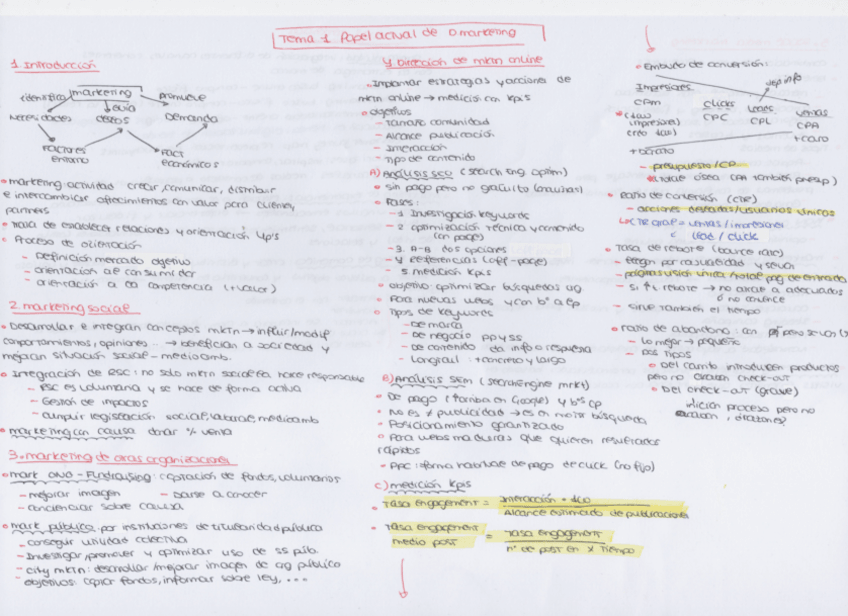 Tema 1 Papel actual de D marketing
1 Introducción
marketing
identifica
promueve
Guía
Necesidades
deseos
Demanda
Factores
entorno
Fact
económicos
• marketing: actividad crear, comunicar, distribuir
e intercambiar ofrecimientos con valor para clientes,
partners
• Trata de establecer relaciones y orientación 4p's
• Proceso de orientación
- Definición mercado objetivo
- orientación al consumidor
- orientación a la competencia (+valor)
2. marketing social
• Desarrollar e integran conceptos mktn → influir/modif
comportamientos, opiniones ... → benefician a sociedad y
mejoran situación social - medioamb.
• Integración de RSC: no solo mktn social es hace responsable
- RSC es voluntaria y se hace de forma activa
- Gestión de impactos
- cumplir legislación social, laboral, medioamb
• marketing con causa donar % venta
3. marketing de otras organizaciones
• mark ONG - Fundraising: captación de fondos, voluntarios
- mejorar imagen - Darse a conocer
- concienciar sobre causa
• mark pública: por instituciones de titularidad pública
- conseguir utilidad colectiva
- Investigar, promover y optimizar uso de ss púb.
- city mktn: desarrollar/mejorar imagen de ag público
- objetivos: captar fondos, informar sobre ley, ...
4 Dirección de mktn online
• Implantar estrategias y acciones de
mktn online → medición con kpis
• objetivos
- Tamaño comunidad
- Alcance publicación
- Interacción
- Tipo de contenido
A) Análisis SEO (search eng. optim)
• sin pago pero no gratuito
• Fases:
- 1 Investigación keywords
- 2 optimización técnica y contenido
(on page)
- 3. A-B dos opciones
- 4 Referencias (off-page)
- 5. medición kpis
• objetivo: optimizar búsquedas
• Para nuevas webs y con
• Tipos de keywords
- De marca
- De negocio pp y ss
- De contenido da info o respuesta
- Longtail: + concreto y largo
B) Análisis SEM (search engine mrkt)
• De pago (+arriba en Google) y
• No es ≠ publicidad → es en motor búsqueda
• Posicionamiento garantizado
• Para webs maduras que quieren resultados
rápidos
• PPC: forma habitual de pago de click (no fijo)
C) medición kpis
• Tasa engagement = Interacción
Alcance estimado de publicaciones
• Tasa engagement
medio post
= Tasa engagement
nº de post en X tiempo
• Embudo de conversión:
Impresiones
CPM
clicks
CPC
leads
CPL
ventas
CPA
+ caro
+ barato
- presupuesto/CP
• Ratio de conversión
- acciones deseadas/usuarios únicos
ventas / impresiones
lead / click
• Tasa de rebote (bounce rate)
- llegan por casualidad y se van
- páginas visión única/total pag de entrada
- si ↑↑ rebote → no atrae a adecuados
ó no convence
- sirve también el tiempo
• ratio de abandono:
- lo mejor → pequeño
- Dos tipos
• Del carrito introducen productos
pero no check-out
• Del check-out (grave)
inician proceso pero no